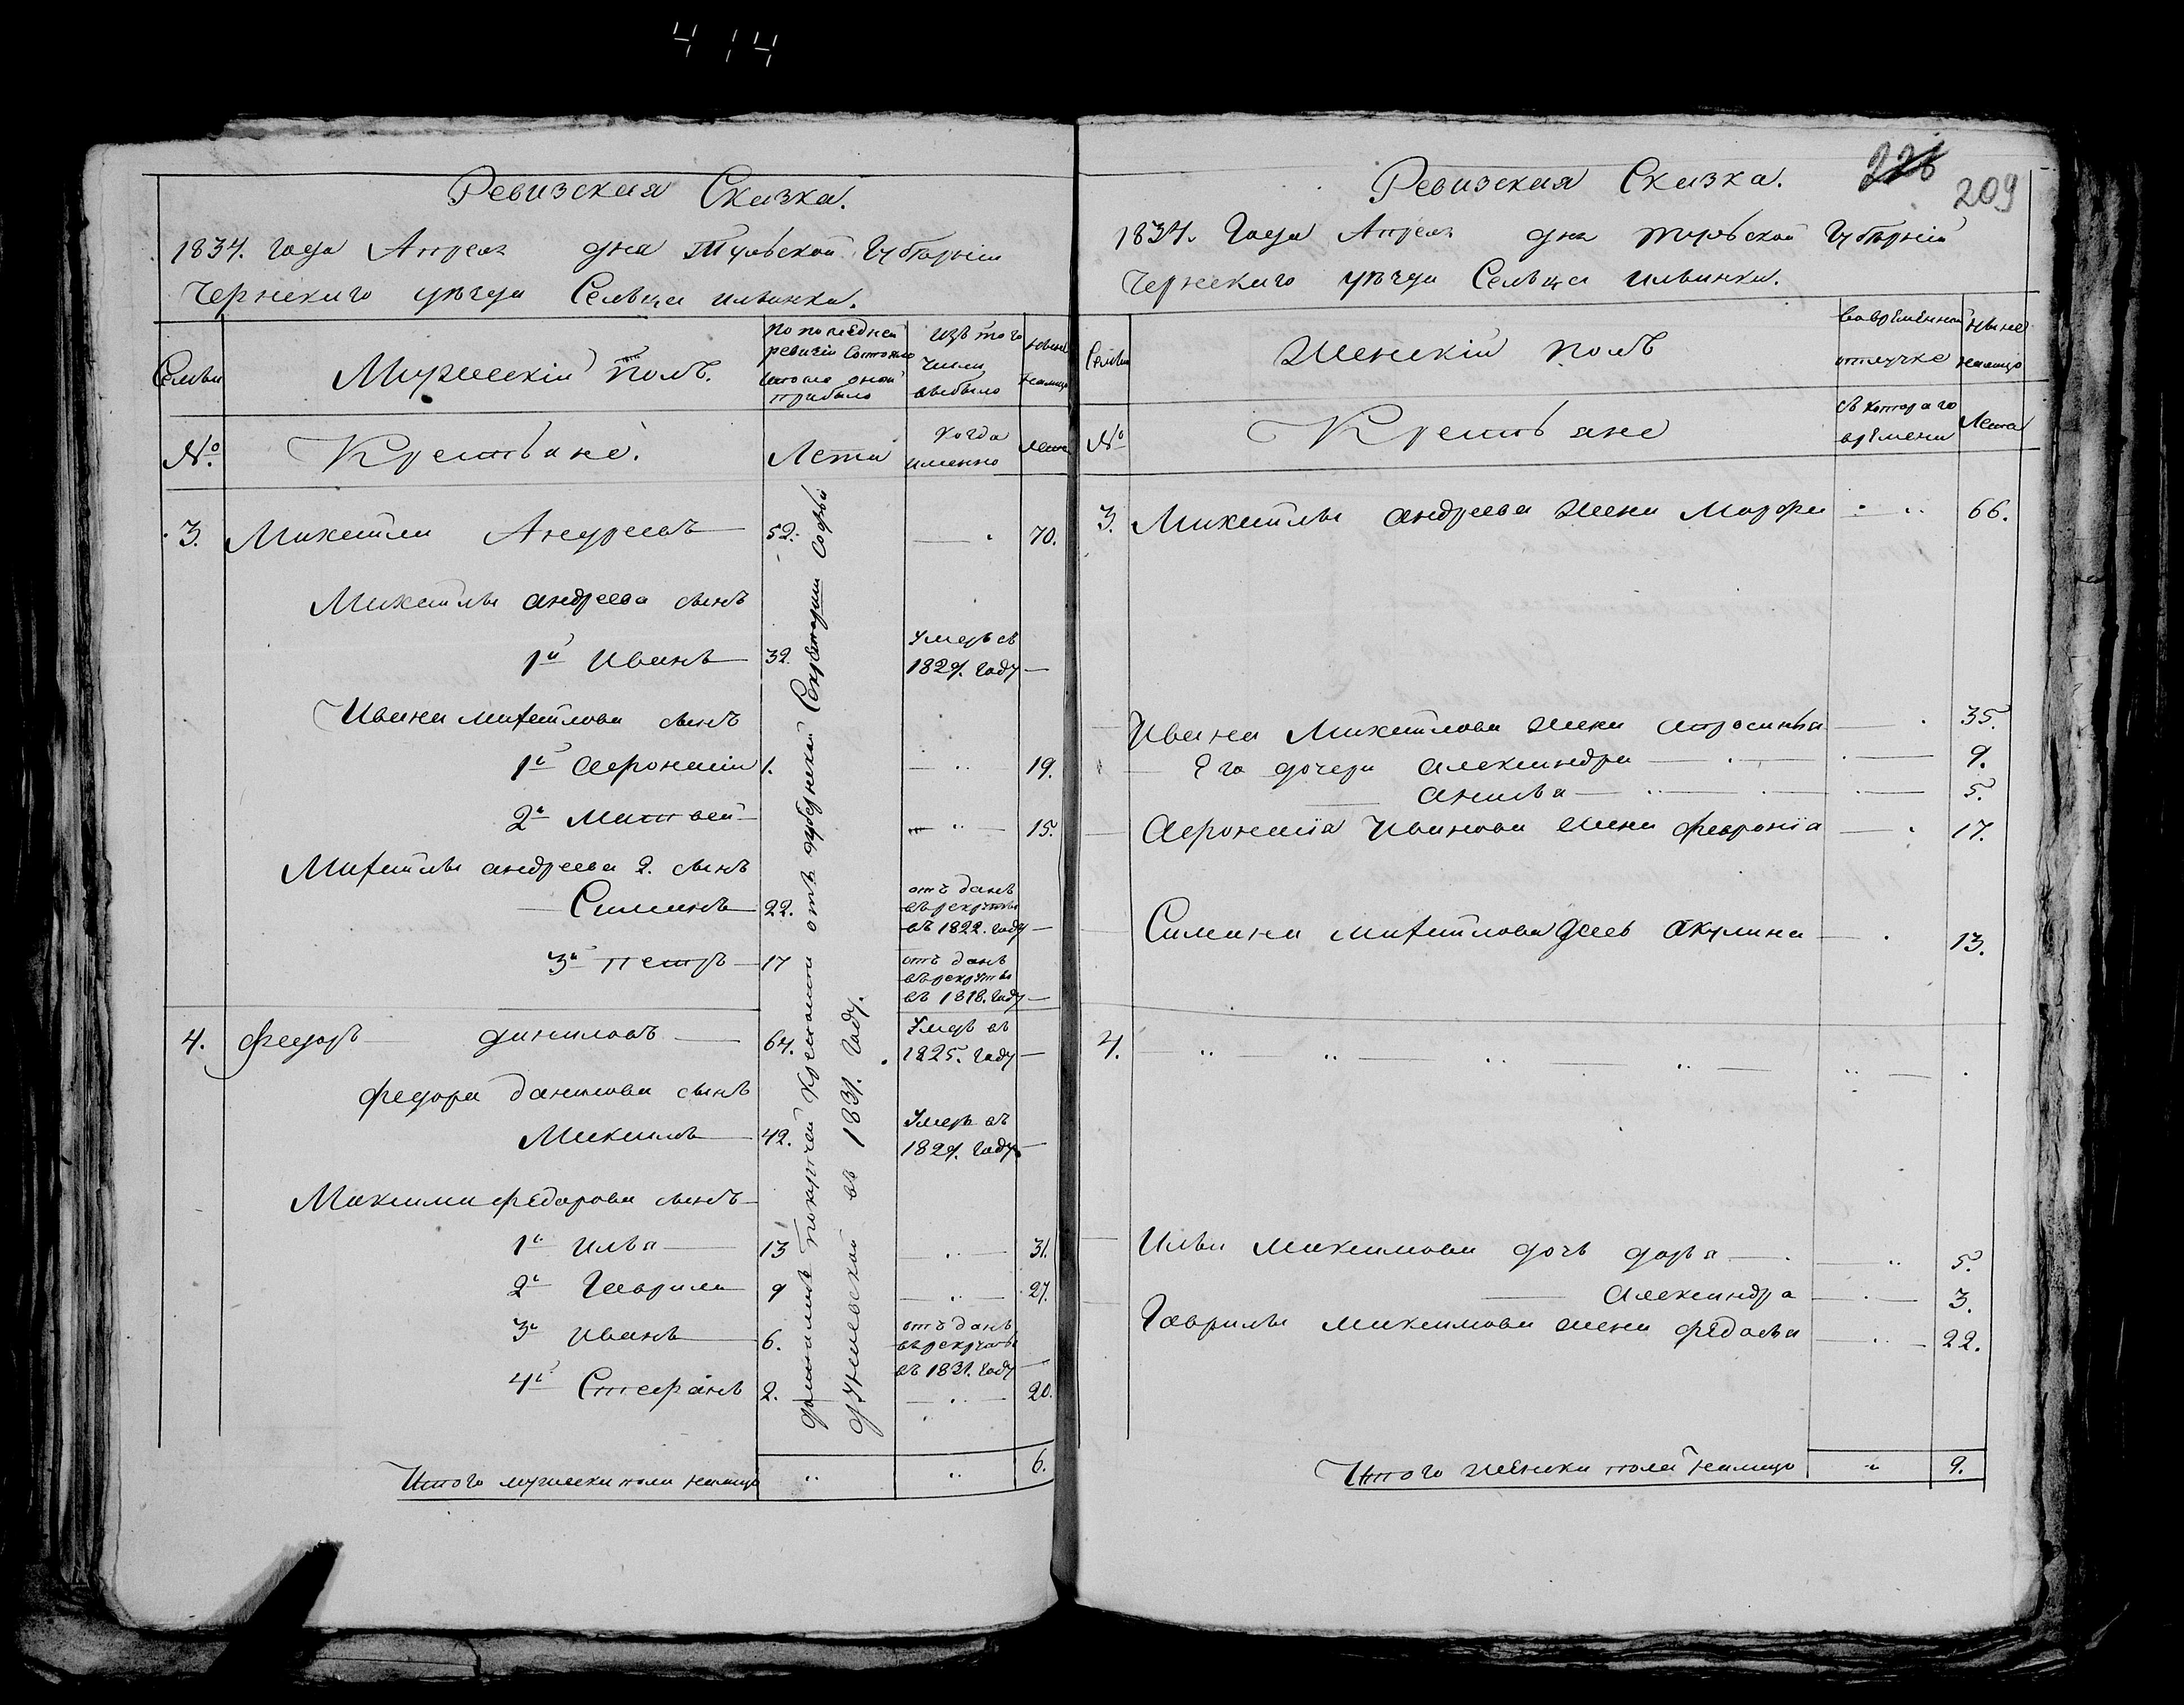 414
Ревизская Сказка.
1834. года Апреля дня Тульской Губернии
Чернскаго уезда Сельца Ильинки.
Семьи
Мужескій полъ.
по последней ревизіи состояло и после оной прибыло
Изъ того числа выбыло
Ныне налицо
№
Крестьяне.
Лета
когда именно
Лета
3. Михайла Андреевъ 52. 70.
Михайлы андреева сынъ
1й Иванъ 32. Умеръ въ 1829. году
Ивана михайлова сынъ
1й Афонасій 1. 19.
2й Матвей 15.
Михайлы андреева 2. сынъ
Симионъ 22. отъ данъ въ рекруты въ 1822. году
3й петръ 17 отъ данъ въ рекруты въ 1818. году
4. федоръ даниловъ 64. Умеръ въ 1825. году
федора данилова сынъ
Максимъ 42. Умеръ въ 1829. году
Максима федорова сынъ
1й Илья 13 31.
2й Гаврила 9 27.
3й Иванъ 6. отъ данъ въ рекруты въ 1831. году
4й Стефанъ 2. 20.
Итого мужеска пола налицо 6.
доставшей покупкей крестьяни отъ губернской Секретарши Софьи
въ 1831. году.
226
209
Ревизская Сказка.
1834. Года Апреля дня тульской Губерніи
Чернскаго уезда Сельца ильинки.
Семьи
Женскій полъ
Во временной отлучке
Ныне налицо
№
Крестьяне
съ котораго времени
Лета
3. Михайлы андреева жена Марфа 66.
Ивана Михайлова жена Апросинья 35.
Его дочери александра 9.
анисья 5.
Афонасія Иванова жена февронія 17.
Симиона михайлова дочь Акулина 13.
4.
Ильи Максимова дочь дарья 5.
Александра 3.
Гаврилы максимова жена федосья 22.
Итого женска пола налицо 9.